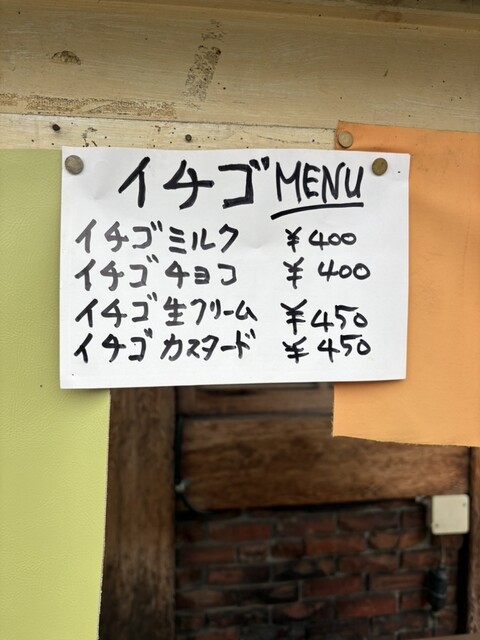 イチゴMENU
イチゴミルク ¥400
イチゴチョコ ¥400
イチゴ生クリーム ¥450
イチゴカスタード ¥450